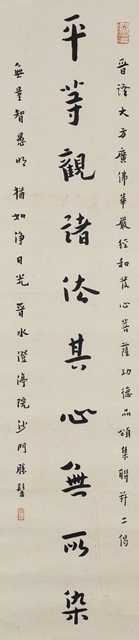 晉譯大方廣佛華嚴經初發心菩薩功德品頌集聯并二偈
平等觀諸法其心無所染
無量智慧明 猶如淨日光 晉水澄濤院沙門勝髻